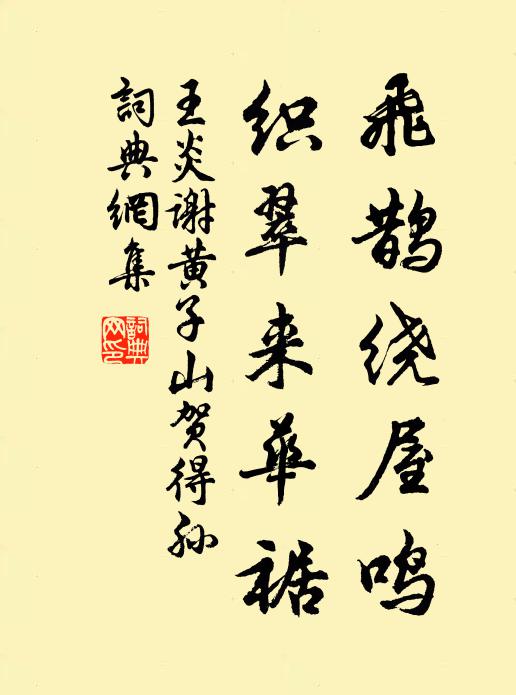 飛鵲绕屋鸣
织翠来華裾
王炎谢黄子山贺得孙
詞典網集
詞典網印